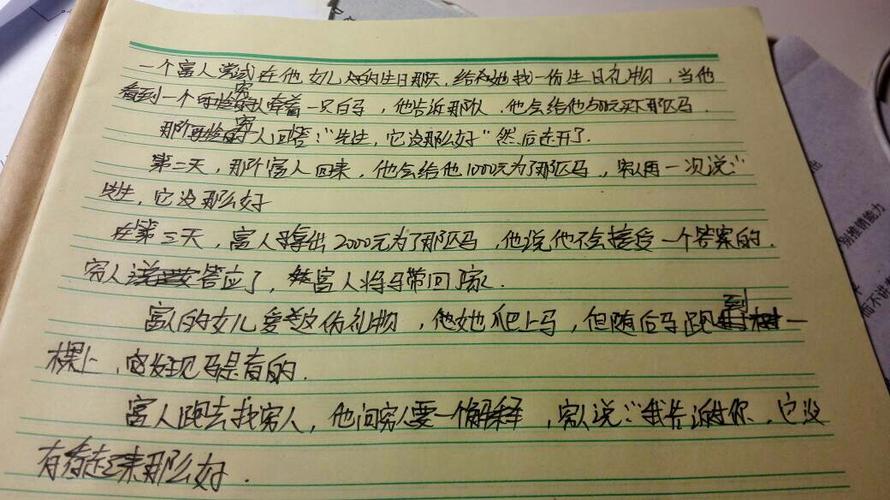 一个富人尝试在他女儿的生日那天,给她找一份生日礼物,当他
看到一个穷人牵着一只白马,他告诉那人,他会给他500元买下那匹马.
那个穷人回答:"先生,它没那么好"然后走开了.
第二天,那个富人回来,他会给他1000元为了那匹马,穷人再一次说:"
先生,它没那么好
在第三天,富人拿出2000元为了那匹马,他说他不会接受一个答案的.
穷人答应了,富人将马带回了家.
富人的女儿爱这份礼物,她爬上马,但随后马跑到一
棵上,发现马是盲的.
富人跑去找穷人,他问穷人要一个解释,穷人说:"我告诉过你,它没
有看起来那么好.
别推销能力
而不讲